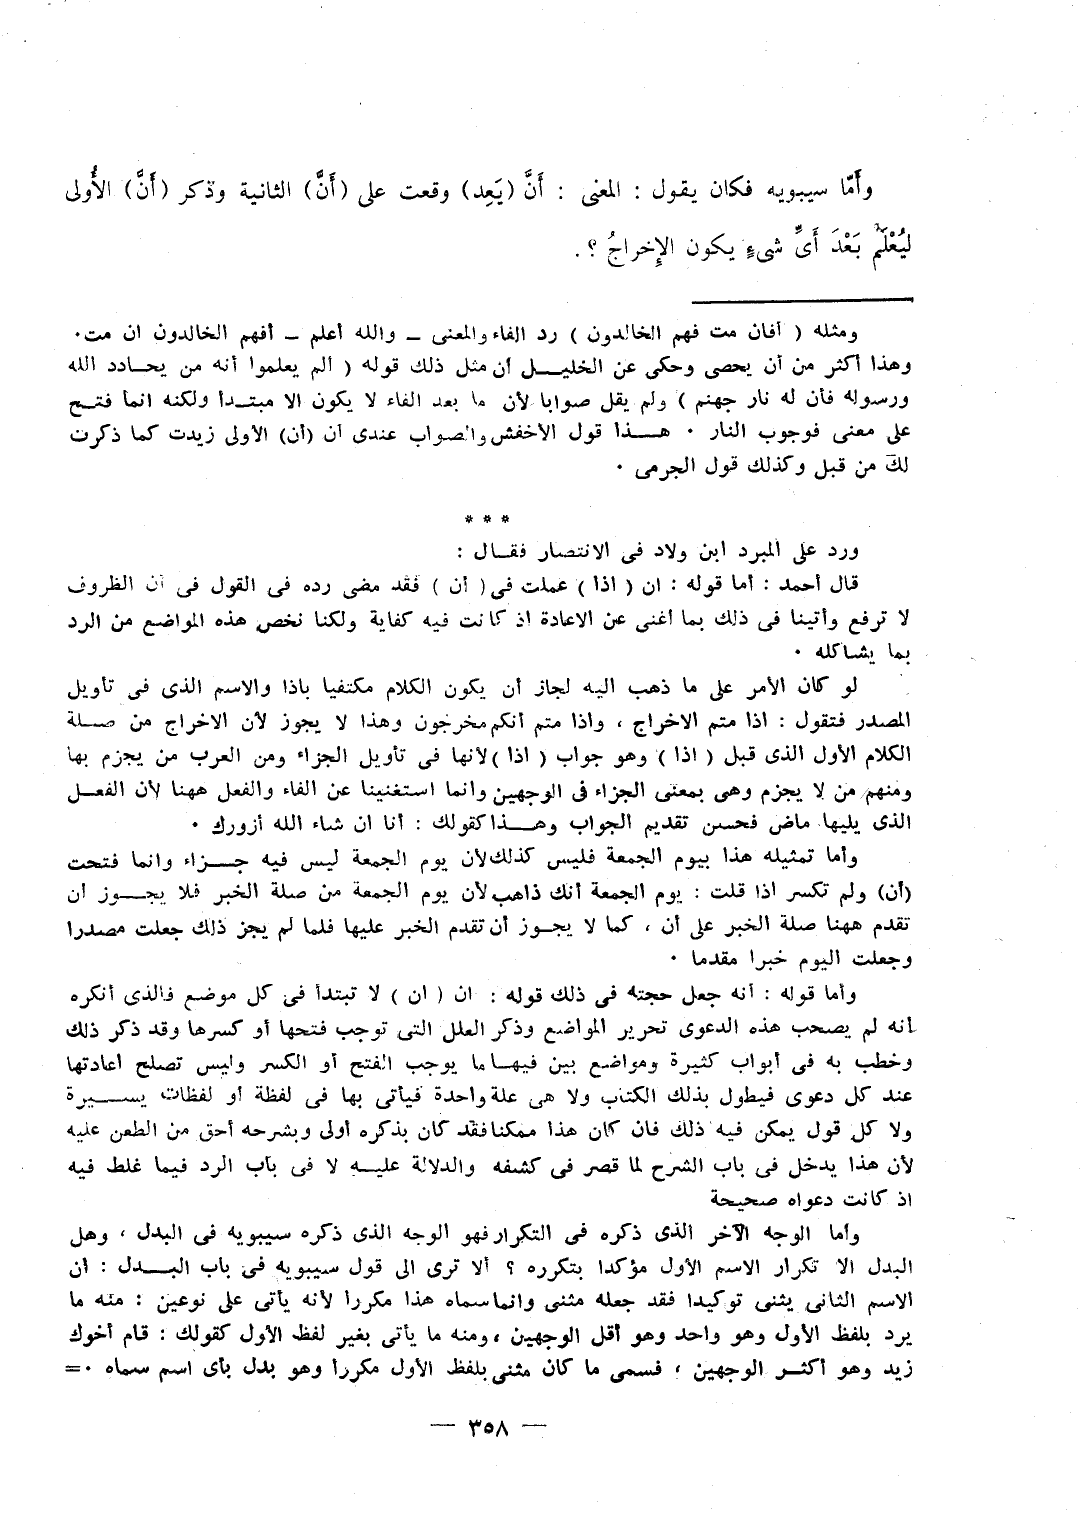 وأَمّا سيبويه فكان يقول : المعنى : أَنَّ (يَعِد) وقعت على (أَنَّ) الثانية وذكر (أَنَّ) الأُولى
ليُعْلَم بَعْدَ أَىِّ شىءٍ يكون الإِخراجُ ؟ .
ومثله ( أفان مت فهم الخالدون ) رد الفاء والمعنى ــ والله أعلم ــ أفهم الخالدون ان مت٠
وهذا أكثر من أن يحصى وحكى عن الخليــل أن مثل ذلك قوله ( ألم يعلموا أنه من يحــادد الله
ورسوله فأن له نار جهنم ) ولم يقل صوابا لأن ما بعد الفاء لا يكون الا مبتــدأ ولكنه انما فتــح
على معنى فوجوب النار ٠ هــذا قول الأخفش والصواب عندى أن (أن) الأولى زيدت كما ذكرت
لك من قبل وكذلك قول الجرمى ٠
* * *
ورد على المبرد ابن ولاد فى الانتصار فقــال :
قال أحمد : أما قوله : ان ( اذا ) عملت فى ( أن ) فقد مضى رده فى القول فى أن الظروف
لا ترفع وأتينا فى ذلك بما أغنى عن الاعادة اذ كانت فيه كفاية ولكنا نخص هذه المواضع من الرد
بما يشاكله ٠
لو كان الأمر على ما ذهب اليه لجاز أن يكون الكلام مكتفيا باذا والاسم الذى فى تأويل
المصدر فتقول : اذا متم الاخراج ، واذا متم أنكم مخرجون وهذا لا يجوز لأن الاخراج من صــلة
الكلام الأول الذى قبل ( اذا ) وهو جواب ( اذا ) لأنها فى تأويل الجزاء ومن العرب من يجزم بها
ومنهم من لا يجزم وهى بمعنى الجزاء فى الوجهين وانما استغنينا عن الفاء والفعل ههنا لأن الفعــل
الذى يليها ماض فحسن تقديم الجواب وهــذا كقولك : أنا ان شاء الله أزورك ٠
وأما تمثيله هذا بيوم الجمعة فليس كذلك لأن يوم الجمعة ليس فيه جــزاء وانما فتحت
(أن) ولم تكسر اذا قلت : يوم الجمعة أنك ذاهب لأن يوم الجمعة من صلة الخبر فلا يجــوز أن
تقدم ههنا صلة الخبر على أن ، كما لا يجــوز أن تقدم الخبر عليها فلما لم يجز ذلك جعلت مصدرا
وجعلت اليوم خبرا مقدما ٠
وأما قوله : أنه جعل حجته فى ذلك قوله : ان ( ان ) لا تبتدأ فى كل موضع فالذى أنكره
أنه لم يصحب هذه الدعوى تحرير المواضع وذكر العلل التى توجب فتحها أو كسرها وقد ذكر ذلك
وخطب به فى أبواب كثيرة ومواضع بين فيهــا ما يوجب الفتح أو الكسر وليس تصلح أعادتها
عند كل دعوى فيطول بذلك الكتاب ولا هى علة واحدة فيأتى بها فى لفظة أو لفظات يســيرة
ولا كل قول يمكن فيه ذلك فان كان هذا ممكنا فقد كان بذكره أولى وبشرحه أحق من الطعن عليه
لأن هذا يدخل فى باب الشرح لما قصر فى كشفه والدلالة عليــه لا فى باب الرد فيما غلط فيه
اذ كانت دعواه صحيحة
وأما الوجه الآخر الذى ذكره فى التكرار فهو الوجه الذى ذكره سيبويه فى البدل ، وهل
البدل الا تكرار الاسم الأول مؤكدا بتكرره ؟ ألا ترى الى قول سيبويه فى باب البــدل : أن
الاسم الثانى يثنى توكيدا فقد جعله مثنى وانما سماه هذا مكررا لأنه يأتى على نوعين : منه ما
يرد بلفظ الأول وهو واحد وهو أقل الوجهين ، ومنه ما يأتى بغير لفظ الأول كقولك : قام أخوك
زيد وهو أكثــر الوجهين ، فسمى ما كان مثنى بلفظ الأول مكررا وهو بدل بأى اسم سماه ٠=
— ٣٥٨ —